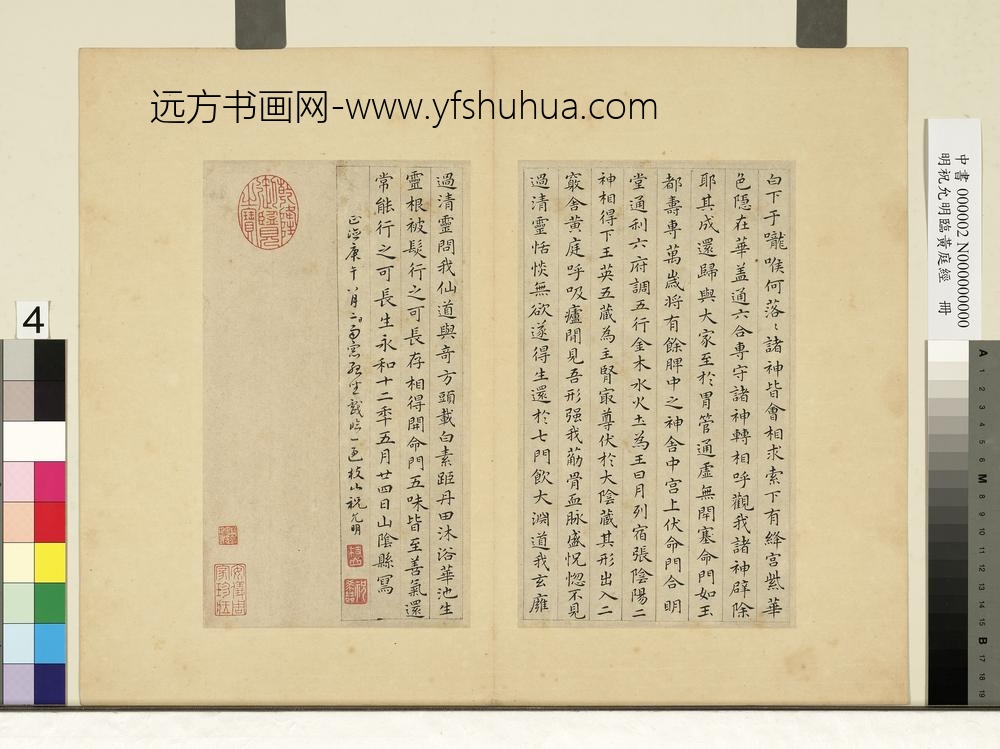 远方书画网-www.yfshuhua.com
中書 0000002 N000000000
明祝允明臨黃庭經 冊
白下于嚨喉何落〻諸神皆會相求索下有絳宮紫華
色隱在華盖通六合專守諸神轉相呼觀我諸神辟除
耶其成還歸與大家至於胃管通虛無閉塞命門如玉
都壽專萬歲將有餘脾中之神舍中宮上伏命門合明
堂通利六府調五行金木水火土為王日月列宿張陰陽二
神相得下玉英五藏為主腎㝡尊伏於大陰藏其形出入二
竅舍黄庭呼吸廬間見吾形强我筋骨血脉盛怳惚不見
過清靈恬惔無欲遂得生還於七門飲大淵道我玄廱
過清靈問我仙道與奇方頭載白素距丹田沐浴華池生
靈根被髮行之可長存相得開命門五味皆至善氣還
常能行之可長生永和十二秊五月廿四日山陰縣寫
正德庚午八月二日雨窓 坐戲臨一過枝山祝允明
乾隆御覽之寶
安儀周家珍藏
4
A 1 2 3 4 5 6 M 8 9 10 11 12 13 14 15 B 17 18 19